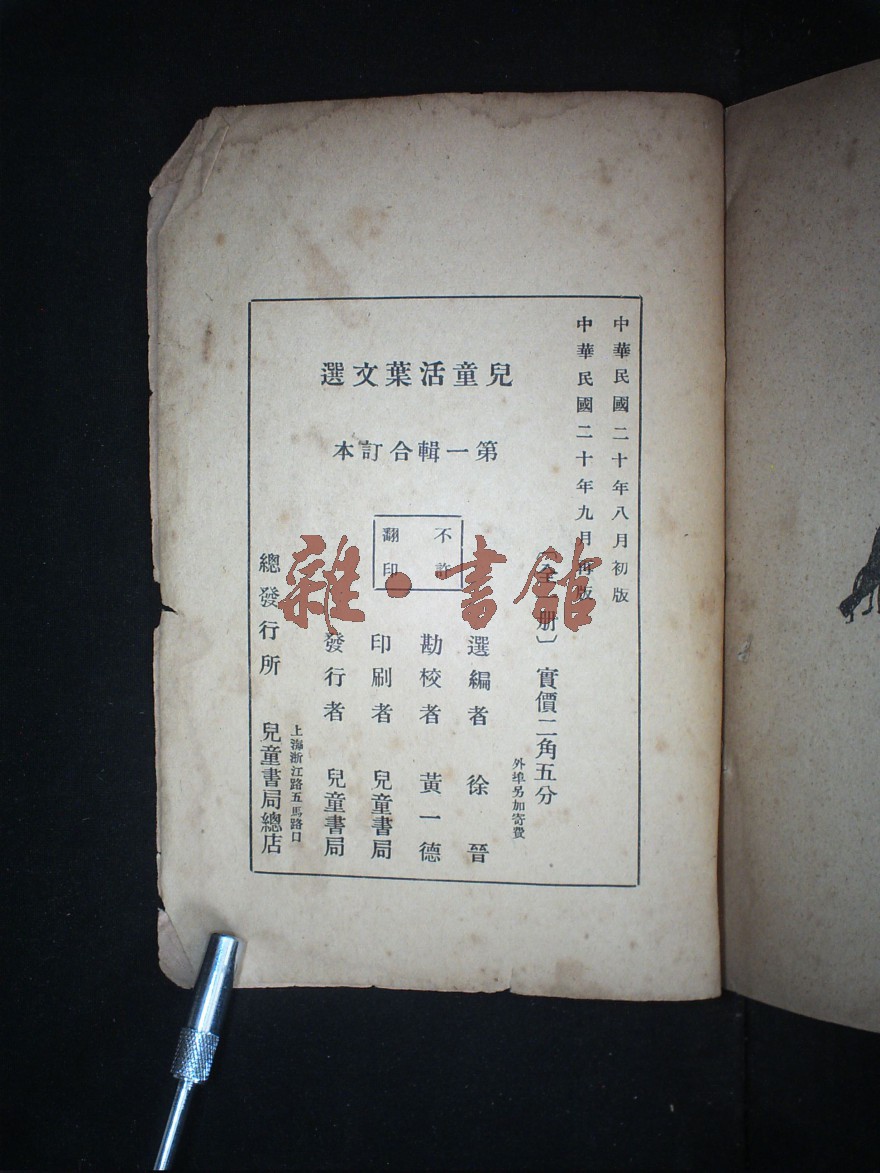 中華民國二十年八月初版
中華民國二十年九月再版
兒童活葉文選
第一輯合訂本
不許
翻印
〔全一册〕實價二角五分
外埠另加寄費
選編者 徐晉
勘校者 黃一德
印刷者 兒童書局
發行者 兒童書局
上海浙江路五馬路口
總發行所 兒童書局總店
雜·書館